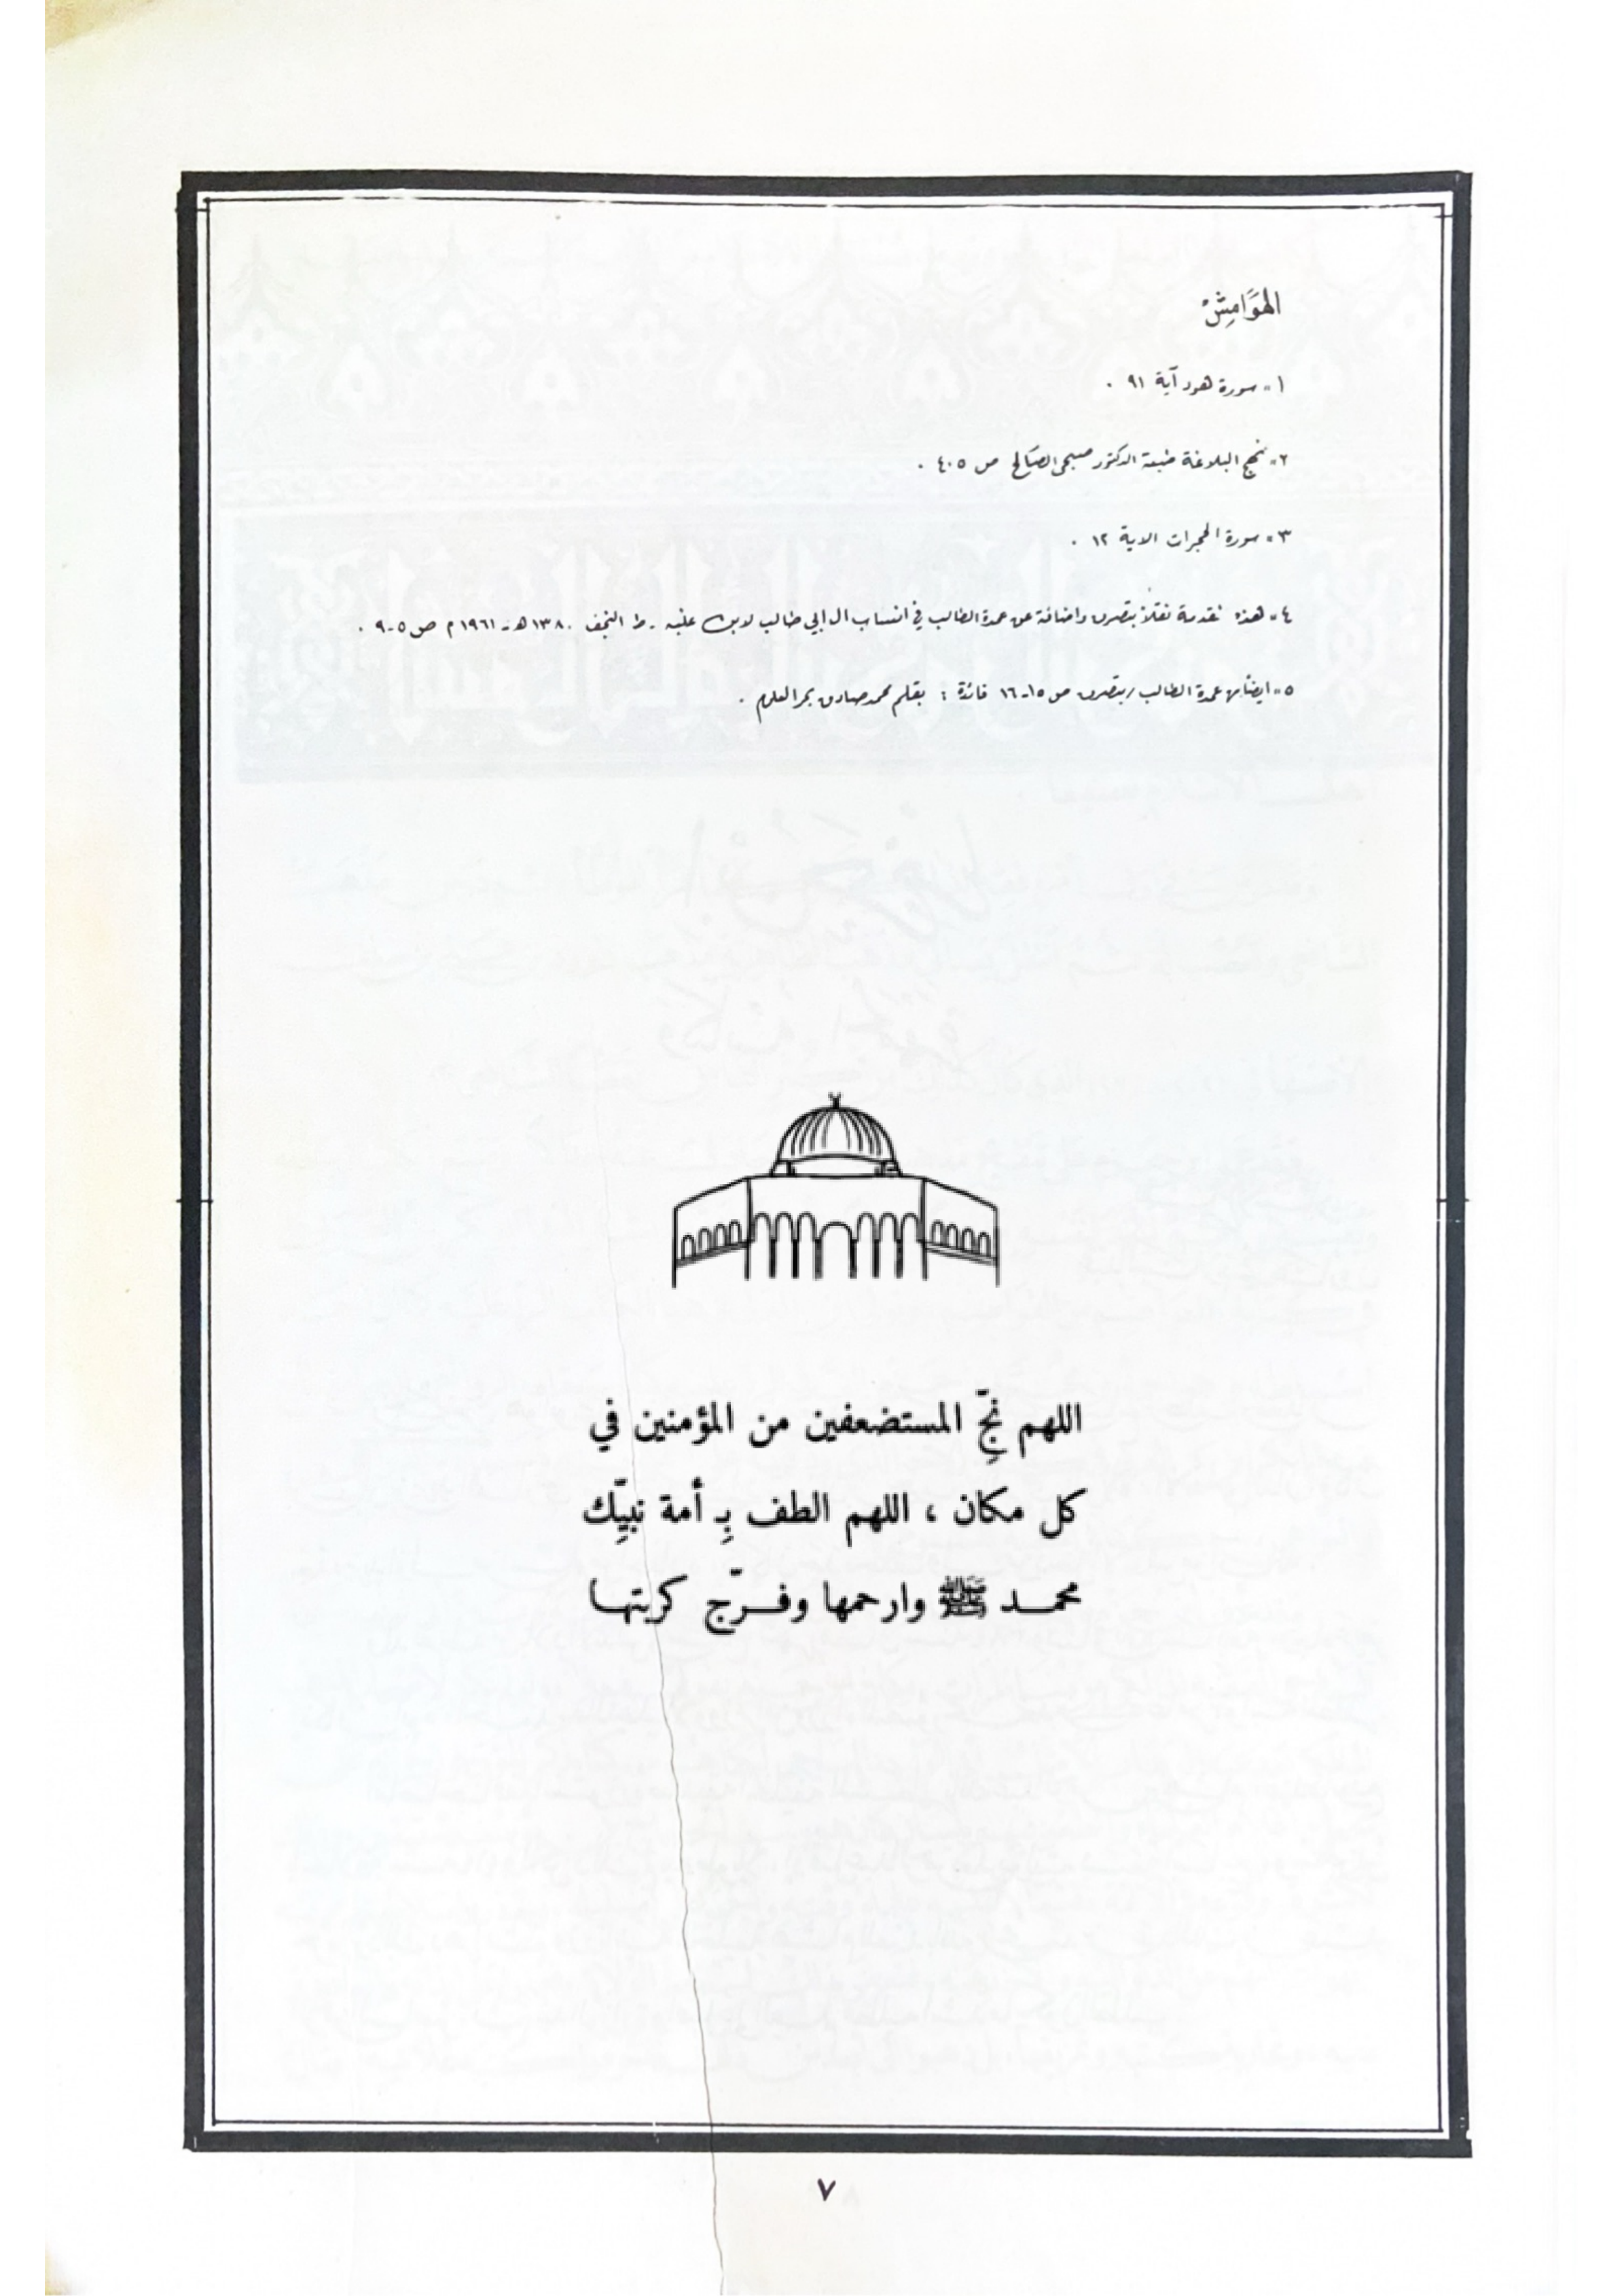 الهَوَامِشْ
١- سورة هود آية ٩١ .
٢- نهج البلاغة طبعة الدكتور صبحي الصَالح ص ٤٠٥ .
٣- سورة الحجرات الاية ١٢ .
٤- هذه تقدمة نقلاً بتصرف واضافة عن عمدة الطالب في انساب ال ابي طالب لابن عنبه - ط النجف ١٣٨٠ هـ - ١٩٦١ م ص ٥-٩ .
٥- ايضاً عمدة الطالب / بتصرف ص ١٥-١٦ فائدة : بقلم محمد صادق بحر العلوم .
اللهم نجِّ المستضعفين من المؤمنين في
كل مكان ، اللهم الطف بِـ أمة نبيِّك
محمـد ﷺ وارحمها وفـرّج كربتهـا
٧